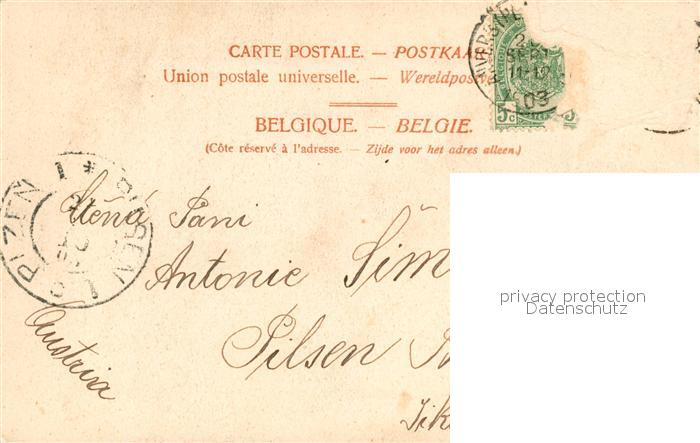 CARTE POSTALE. — POSTKAA
Union postale universelle. — Wereldpostve
BELGIQUE. — BELGIE.
(Côte réservé à l'adresse. — Zijde voor het adres alleen.)
2
SEPT
11-12
03
5 c
PLZEN 1 * PILSEN 1
Ctěná Paní
Antonie Šim
Pilsen
Austria
privacy protection
Datenschutz